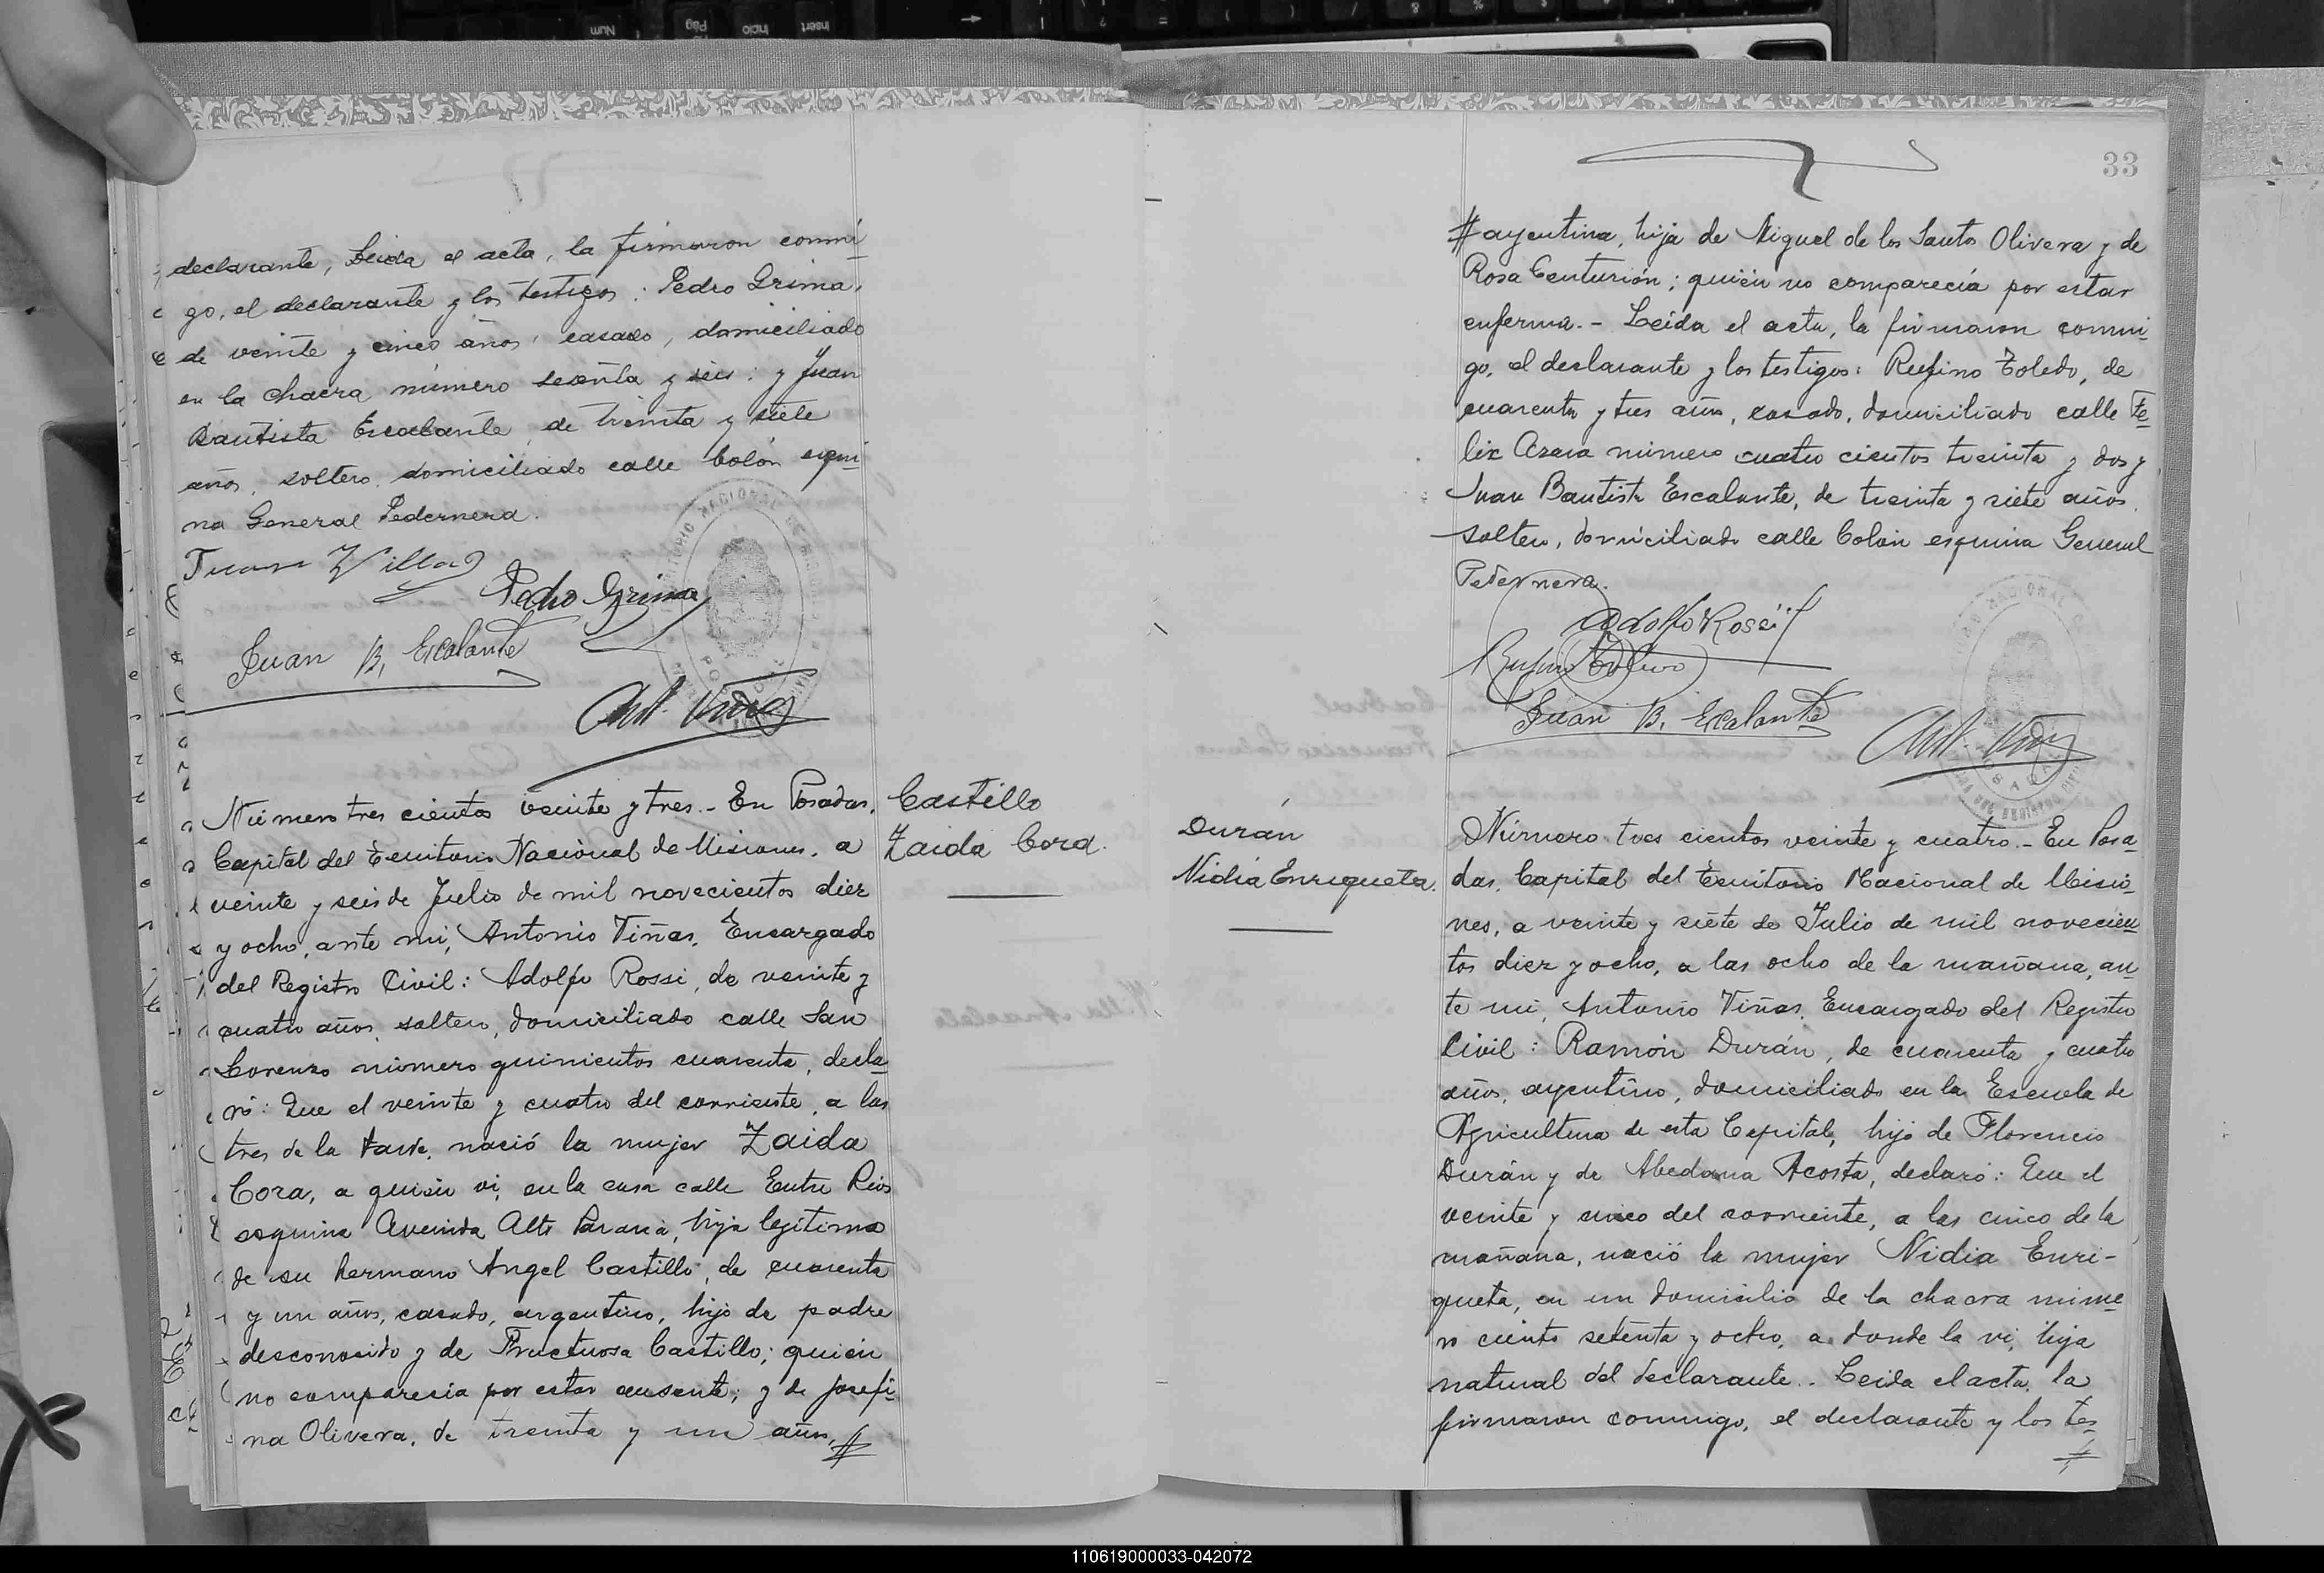 declarante, Leida el acta, la firmaron conmi
go, el declarante y los testigos: Pedro Grima,
de veinte y cinco años, casado, domiciliado
en la chacra número sesenta y seis: y Juan
Bautista Escalante, de treinta y siete
años, soltero, domiciliado calle Colón esqui
na General Pedernera.
Pedro Grima
Juan B. Escalante
Ant. Viñas
Castillo
Zaida Cora.
Número tres cientos veinte y tres.- En Posadas,
Capital del Territorio Nacional de Misiones, a
veinte y seis de Julio de mil novecientos diez
y ocho, ante mi, Antonio Viñas, Encargado
del Registro Civil: Adolfo Rossi, de veinte y
cuatro años, soltero, domiciliado calle San
Lorenzo número quinientos cuarenta, decla
ró: Que el veinte y cuatro del corriente, a las
tres de la tarde, nació la mujer Zaida
Cora, a quién vi, en la casa calle Entre Rios
esquina Avenida Alto Paraná, hija legítima
de su hermano Angel Castillo, de cuarenta
y un años, casado, argentino, hijo de padre
desconosido y de Fructuosa Castillo; quién
no comparecía por estar ausente; y de Josefi
na Olivera, de treinta y un años,#
33
#argentina, hija de Miguel de los Santos Olivera y de
Rosa Centurión; quién no comparecía por estar
enferma.- Leída el acta, la firmaron conmi
go, el declarante y los testigos: Rufino Toledo, de
cuarenta y tres años, casado, domiciliado calle Fe
lix Azara número cuatro cientos treinta y dos y
Juan Bautista Escalante, de treinta y siete años,
soltero, domiciliado calle Colón esquina General
Pedernera.
Adolfo Rossi
Rufino Toledo
Juan B. Escalante
Ant. Viñas
Durán
Nidia Enriqueta.
Número tres cientos veinte y cuatro.- En Posa
das, Capital del Territorio Nacional de Misio
nes, a veinte y siete de Julio de mil novecien
tos diez y ocho, a las ocho de la mañana, an
te mi, Antonio Viñas, Encargado del Registro
Civil: Ramón Durán, de cuarenta y cuatro
años, argentino, domiciliado en la Escuela de
Agricultura de esta Capital, hijo de Florencio
Durán y de Acosta, declaró: Que el
veinte y cinco del corriente, a las cinco de la
mañana, nació la mujer Nidia Enri-
queta, en un domicilio de la chacra núme
ro ciento setenta y ocho, a donde la vi, hija
natural del declarante.- Leida el acta, la
firmaron conmigo, el declarante y los tes
#
110619000033-042072